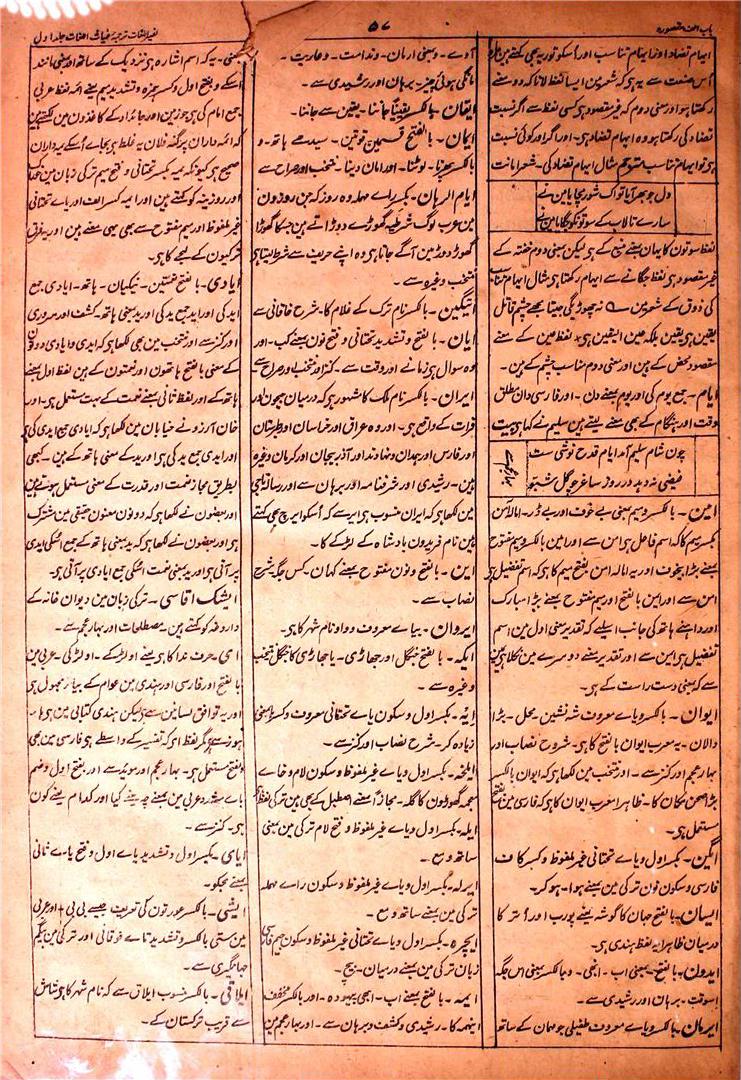 باب الف مقصورہ
۵۷
نصیر اللغات ترجمۂ غیاث اللغات جلد اول
ایہام تضاد اور ایہام تناسب اور اسکو توریہ بھی کہتے ہین
اس صنعت سے یہ ہی کہ شعر مین ایسا لفظ لانا کہ دو معنے
رکھتا ہو اور معنی دوم کہ غیر مقصود ہی کسی لفظ سے اگر نسبت
تضاد کی رکھتا ہو وہ ایہام تضاد ہی۔ اور اگر اور کوئی نسبت
ہی تو ایہام تناسب مثال ایہام تضاد کی۔ شعر امانت
دل جو بھر آیا تو اک شور مچایا مین نے
سارے تالاب کے سوتو نکو جگایا مین نے
لفظ سوتون کا یہان بمعنے منبع کے ہی لیکن بمعنی دوم خفتہ کے
غیر مقصود ہی لفظ جگانے سے ایہام رکھتا ہی مثال ایہام تناسب
کی ذوق کے شعر مین سے نہ چھوڑیگی جیتا مجھے چشم قاتل
یقین ہی یقین بلکہ عین الیقین ہی لفظ عین کے معنے
مقصود محض کے ہین اور معنی دوم مناسب چشم کے ہین۔
ایام۔ جمع یوم کی اور یوم بمعنے دن۔ اور فارسی دان مطلق
وقت اور ہنگام کے بھی معنے لیتے ہین سلیم نے کہا ہی بیت
چون شام سلیم آمد ایام قدح نوشی ست
فیضی نہ دہد در روز ساغر چو گل شببو
ایمن۔ بالکسر و میم بمعنی بے خوف اور بے ڈر۔ امالہ آمن
بکسر میم کا کہ اسم فاعل ہی امن سے اور ایمن بالکسر و میم مفتوح
بمعنے بڑا بیخوف اور یہ امالہ امن بفتح میم کا ہی کہ اسم تفضیل ہی
امن سے اور ایمن بالفتح اور میم مفتوح بمعنے بڑا مبارک
اور داہنے ہاتھ کی جانب اسلیے کہ تقدیر بمعنی اول مین اسم
تفضیل ہی یمن سے اور تقدیر بمعنے دوسرے مین نکلا ہی یمین
سے کہ بمعنی دست راست کے ہی۔
ایوان۔ بالکسر و یاے معروف شہ نشین۔ محل۔ بڑا
دالان۔ یہ معرب ایوان بالفتح کا ہی۔ شروح نصاب اور
بہار عجم اور کنز سے۔ اور منتخب مین لکھا ہی کہ ایوان بالکسر
بڑا صحن مکان کا۔ ظاہرا معرب ایوان کا ہی کہ فارسی مین بفتح
مستعمل ہی۔
ایگین۔ بکسر اول و یاے تحتانی غیر ملفوظ و کسر کاف
فارسی و سکون نون ترکی مین بمعنے ہوا۔ ہوکر۔
ایسان۔ بالفتح جہان کا گوشہ بمعنے پورب اور اُتر کا
درمیان ظاہرا یہ لفظ ہندی ہی۔
ایدون۔ بالفتح۔ بمعنی اب۔ ابھی۔ و بالکسر بمعنی اس جگہ
اسوقت۔ برہان اور رشیدی سے۔
ایرمان۔ بالکسر و یاے معروف طفیلی جو مہمان کے ساتھ
آوے۔ و بمعنی ارمان۔ و ندامت۔ و عاریت۔
مانگی ہوئی چیز۔ برہان اور رشیدی سے۔
ایقان۔ بالکسر یقیناً جاننا۔ یقین سے جاننا۔
ایمان۔ بالفتح قسمین قوتین۔ سیدھے ہاتھ۔ و
بالکسر پھرنا۔ لوٹنا۔ اور امان دینا۔ منتخب اور صراح سے
ایام الرہان۔ بکسر راے مہملہ وہ روز کہ جن روزون
مین عرب لوگ شرطیہ گھوڑے دوڑاتے ہین جسکا گھوڑا
گھوڑ دوڑ مین آگے جاتا ہی وہ اپنے حریف سے شرط لیتا ہی
منتخب وغیرہ سے۔
ایتگین۔ بالکسر نام ترک کے غلام کا۔ شرح خاقانی سے
ایان۔ بالفتح و تشدید تحتانی و فتح نون بمعنے کب۔ اور
وہ سوال ہی زمانے اور وقت سے۔ کنز اور منتخب اور صراح سے
ایران۔ بالکسر نام ملک کا مشہور ہی کہ درمیان جیحون اور
فرات کے واقع ہی۔ اور وہ عراق اور خراسان اور طبرستان
اور فارس اور ہمدان و نہاوند اور آذربیجان اور کرمان وغیرہ
ہین۔ رشیدی اور شرفنامہ اور برہان سے اور رسالۂ پہلی
مین لکھا ہی کہ ایران منسوب ہی ایرسے کہ اسکو ایرج بھی کہتے
ہین نام فریدون بادشاہ کے لڑکے کا۔
این۔ بالفتح و نون مفتوح بمعنے کہان۔ کس جگہ شرح
نصاب سے۔
ایروان۔ بیاے معروف و واو نام شہر کا ہی۔
ایکہ۔ بالفتح جنگل اور جھاڑی۔ یا جھاڑی کا جنگل منتخب
وغیرہ سے۔
ایہ۔ بکسر اول و سکون یاے تحتانی معروف و کسرہ بمعنی
زیادہ کر۔ شرح نصاب اور کنز سے۔
ایلخہ۔ بکسر اول و یاے غیر ملفوظ و سکون لام و خاے
معجمہ گھوڑون کا گلہ۔ مجازاً بمعنے اصطبل کے بھی ہین ترکی لفظ
ایلہ۔ بکسر اول و یاے غیر ملفوظ و فتح لام ترکی مین بمعنی
ساتھ و مع۔
ایرلہ۔ بکسر اول و یاے غیر ملفوظ و سکون راے مہملہ
ترکی مین بمعنے ساتھ و مع۔
ایچرہ۔ بکسر اول و یاے تحتانی غیر ملفوظ و سکون جیم فارسی
زبان ترکی مین بمعنے درمیان۔ بیچ۔
ایمہ۔ بالفتح بمعنے اب۔ ابھی بیہودہ۔ اور بالکسر مخفف
اینہمہ کا۔ رشیدی و کشف و برہان سے۔ اور بہار عجم مین
بمعنی۔ یہ کہ اسم اشارہ ہی نزدیک کے ساتھ اور بمعنی مانند
اسکے و بفتح اول و کسر ہمزہ و تشدید میم بمعنے ائمہ لفظ عربی
جمع امام کی ہی جو زمین اور جائداد کے کاغذون مین لکھتے ہین
کہ ائمہ داران پرگنہ فلان یہ غلط ہی بجاے اسکے یمہ داران
صحیح ہی کیونکہ یمہ بکسر تحتانی و فتح میم ترکی زبان مین خوراک
اور روزینہ کو کہتے ہین اور ایمہ کسر الف اور یاے تحتانی
غیر ملفوظ اور میم مفتوح سے بھی یہی معنے ہین اور یہ فرق
ترکیون کے لہجے کا ہی۔
ایادی۔ بالفتح نعمتین۔ نیکیان۔ ہاتھ۔ ایادی جمع
ایدی کی اور اید جمع ید کی اور ید بمعنی ہاتھ۔ کشف اور سروری
اور کنز سے اور منتخب مین بھی لکھا ہی کہ ایدی و ایادی دونون
کے معنی بالفتح ہاتھون اور نعمتون کے ہین لفظ اول بمعنے
ہاتھ کے اور لفظ ثانی بمعنے نعمت کے بہت مستعمل ہی۔ اور
خان آرزو نے خیابان مین لکھا ہی کہ ایادی جمع ایدی کی ہی
اور ایدی جمع ید کی ہی اور ید کے معنی ہاتھ کے ہین۔ کبھی
بطریق مجاز نعمت اور قدرت کے معنی مستعمل ہوتے ہین
اور بعضون نے لکھا ہی کہ دونون معنون حقیقی مین مشترک
ہی اور بعضون نے لکھا ہی کہ ید بمعنی ہاتھ کے جمع اسکی ایدی
پر آئی ہی اور ید بمعنی نعمت اسکی جمع ایادی پر آئی ہی۔
ایشک آقاسی۔ ترکی زبان مین دیوان خانہ کے
داروغہ کو کہتے ہین۔ مصطلحات اور بہار عجم سے۔
ای۔ حرف ندا کا ہی بمعنے او لڑکے۔ او لڑکی۔ عربی مین
بالفتح اور فارسی اور ہندی مین عوام کے بیاے مجہول ہی
اور یہ توافق لسانین سے ہی لیکن ہندی کتابی مین ہی ہا۔
ہوز سے ہی مگر لفظ اکہ تفسیر کے واسطے ہی فارسی مین بھی
بفتح مستعمل ہی۔ بہار عجم اور موید سے اور بفتح اول و ضم
یاے مشدد عربی مین بمعنے چہ بمعنے کیا اور کدام بمعنے کون
ہی۔ کنز سے۔
ایای۔ بکسر اول و تشدید یاے اول و فتح یاے ثانی
بمعنے مجکو۔
ایشی۔ بالکسر عورتون کی تعریف جیسے بی بی اور عربی
مین ستی بالکسر و تشدید تاے فوقانی اور ترکی مین بیگم
جہانگیری سے۔
ایلاقی۔ بالکسر منسوب ایلاق سے کہ نام شہر کا ہی شاش
سے قریب ترکستان کے۔